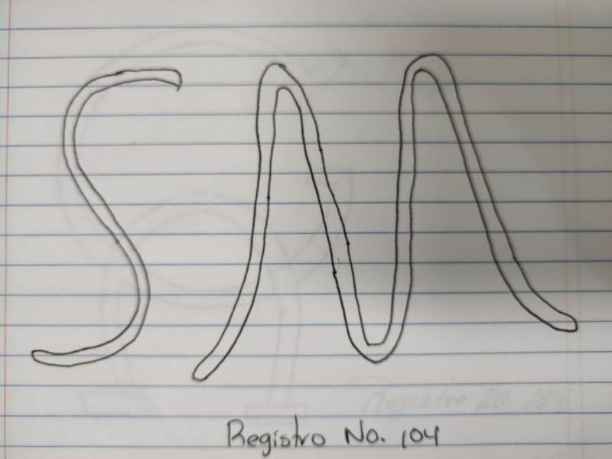 SM
Registro No. 104